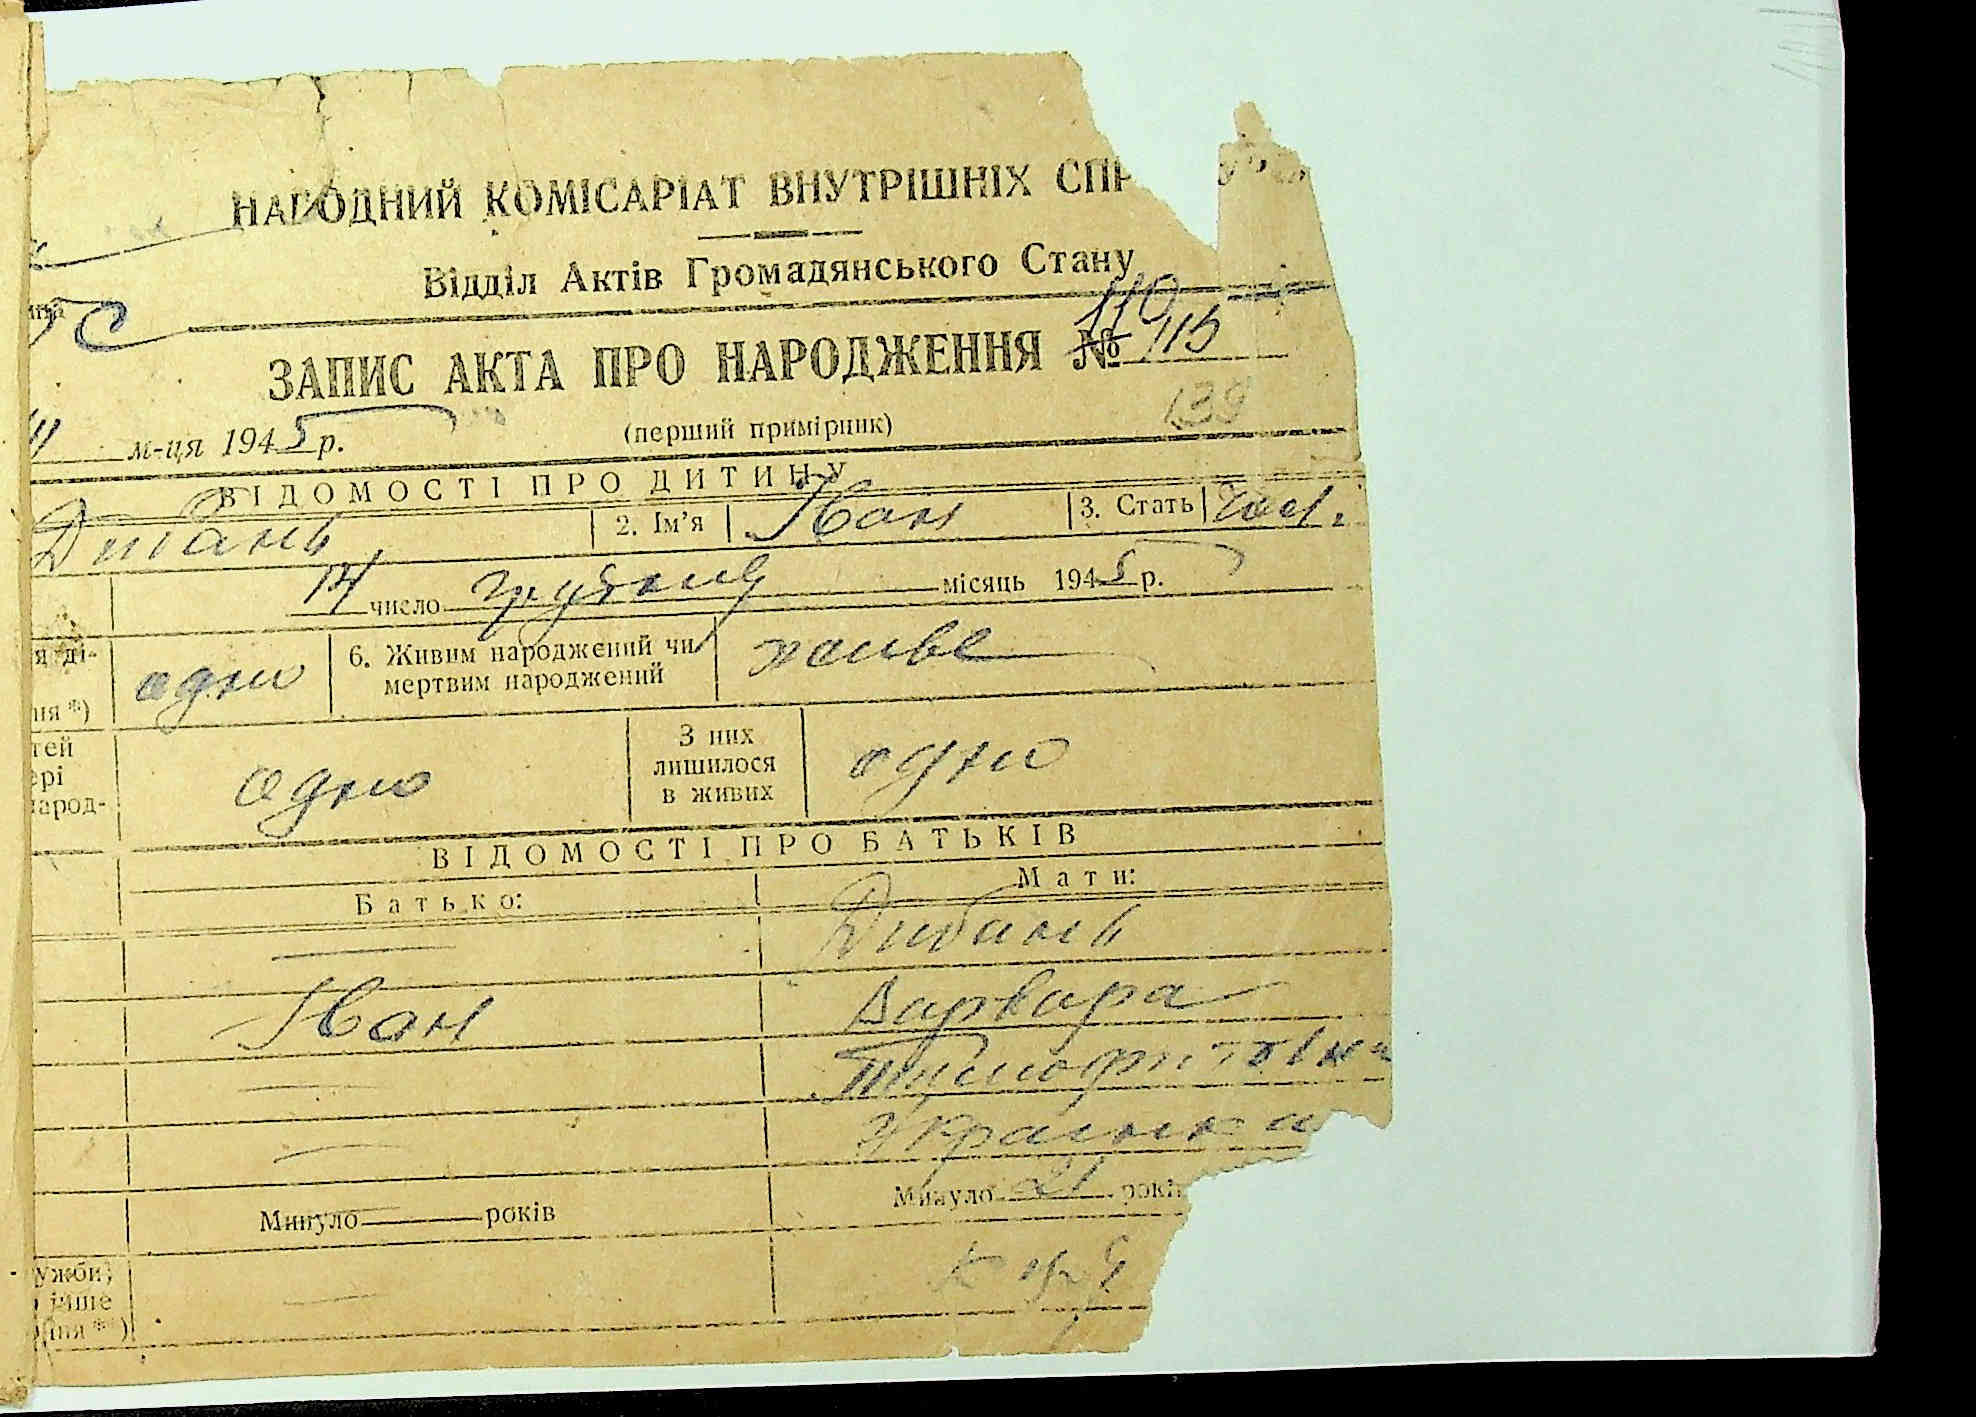 НАРОДНИЙ КОМІСАРІАТ ВНУТРІШНІХ СПР
Відділ Актів Громадянського Стану
110
ЗАПИС АКТА ПРО НАРОДЖЕННЯ № 115
139
м-ця 1945 р. (перший примірник)
ВІДОМОСТІ ПРО ДИТИНУ
Дибань 2. Ім'я Іван 3. Стать чол.
14 число грудня місяць 1945 р.
я ді-
ня *) одно 6. Живим народжений чи мертвим народжений живе
тей
ері
народ- одно З них лишилося в живих одно
ВІДОМОСТІ ПРО БАТЬКІВ
Батько: Мати:
Дибань
Іван Варвара
Українка
Минуло років Минуло 21 рокі
ужби,
інше
ння **)